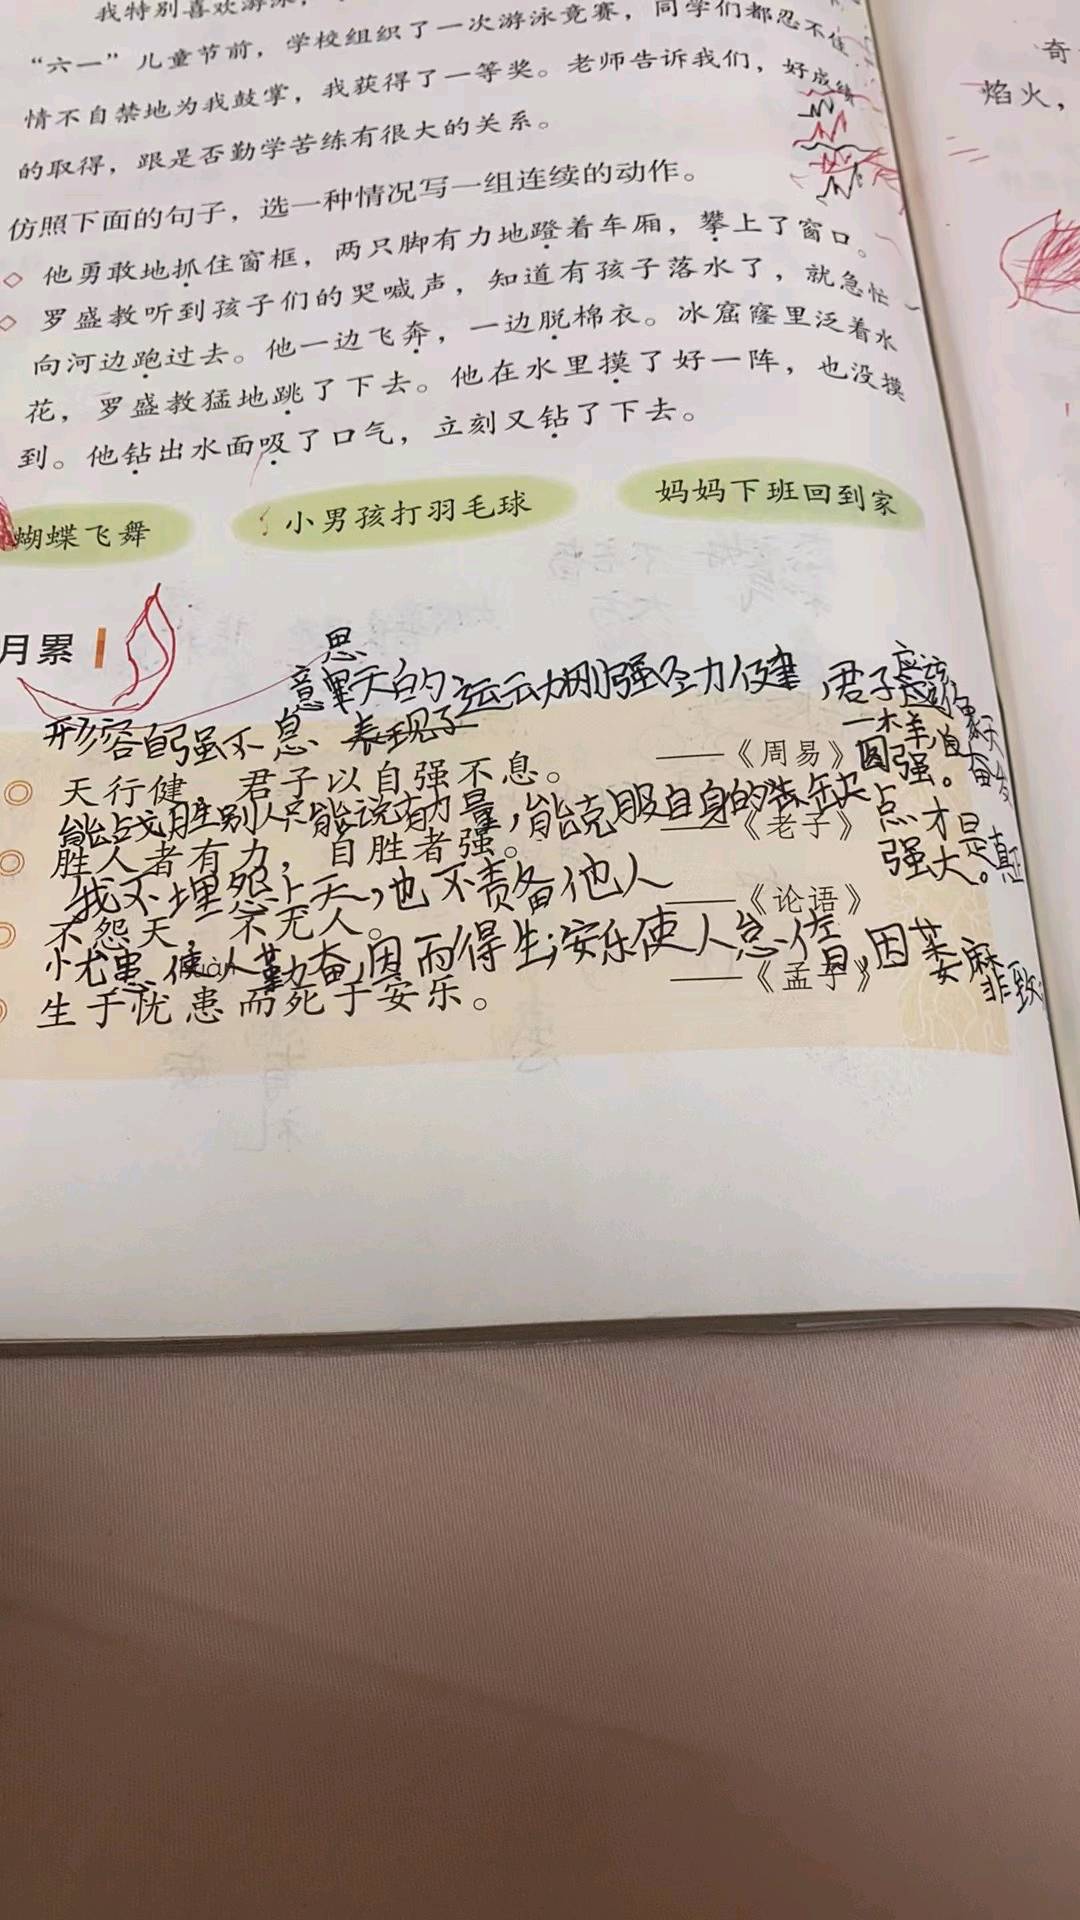 我特别喜欢游泳，
“六一”儿童节前，学校组织了一次游泳竞赛，同学们都忍不住
情不自禁地为我鼓掌，我获得了一等奖。老师告诉我们，好成绩
的取得，跟是否勤学苦练有很大的关系。
仿照下面的句子，选一种情况写一组连续的动作。
他勇敢地抓住窗框，两只脚有力地蹬着车厢，攀上了窗口。
罗盛教听到孩子们的哭喊声，知道有孩子落水了，就急忙
向河边跑过去。他一边飞奔，一边脱棉衣。冰窟窿里泛着水
花，罗盛教猛地跳了下去。他在水里摸了好一阵，也没摸
到。他钻出水面吸了口气，立刻又钻了下去。
蝴蝶飞舞
小男孩打羽毛球
妈妈下班回到家
月累
意思 天的运动刚强劲健，君子应该
一样，自
奋发
图强。
形容自强不息 表现了
天行健，君子以自强不息。 ——《周易》
能战胜别人只能说有力量，能克服自身的 缺点才是真正
强大。
胜人者有力，自胜者强。 ——《老子》
我不埋怨上天，也不责备他人
不怨天，不尤人。 ——《论语》
忧患使人勤奋，因而得生；安乐使人怠惰，因萎靡致
huàn
生于忧患而死于安乐。 ——《孟子》
奇
焰火，